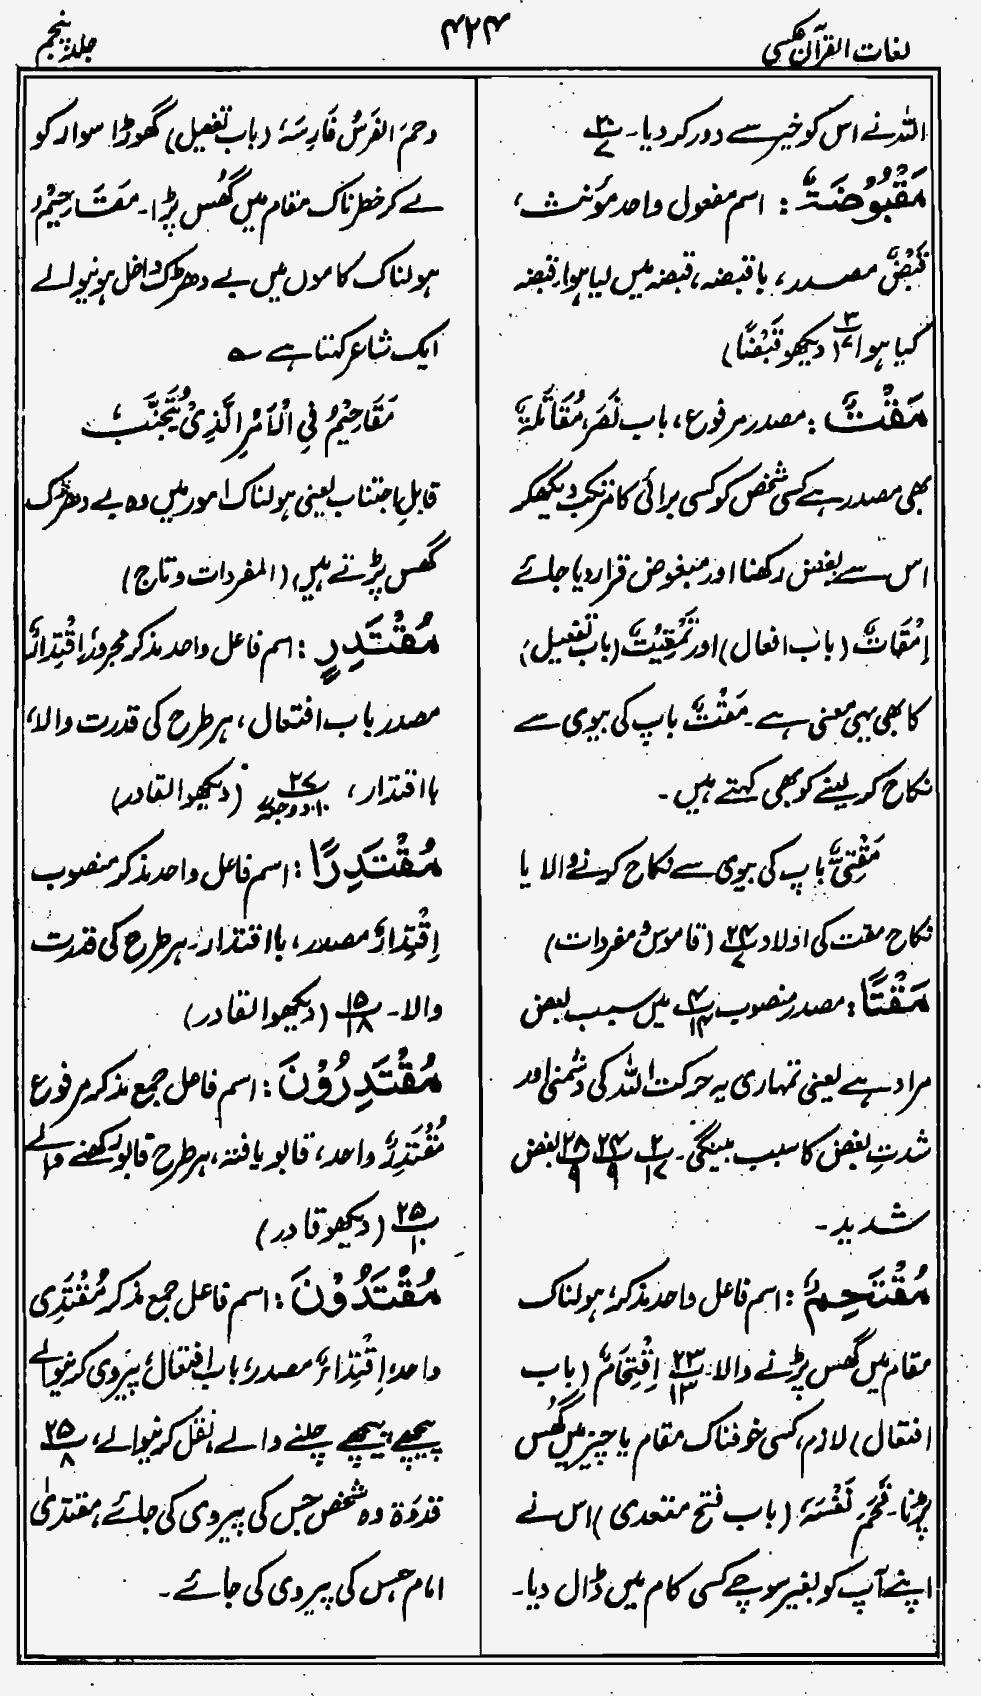 لغات القرآن عکسی
۴۲۴
جلد پنجم
اللہ نے اس کو خیر سے دور کر دیا۔ پ۳۰/۷
مَقْبُوْضَۃٌ: اسم مفعول واحد مؤنث،
قَبْضٌ مصدر، باقبضہ، قبضہ میں لیا ہوا، قبضہ
کیا ہوا ۳/۷ (دیکھو قَبْضًا)
مَقْتٌ: مصدر مرفوع، باب نَصَرَ، مُقَاتَلَۃٌ
بھی مصدر ہے کسی شخص کو کسی برائی کا مرتکب دیکھکر
اس سے بغض رکھنا اور مبغوض قرار دیا جائے
اِمْقَاتٌ (باب افعال) اور تَمْقِیْتٌ (باب تفعیل)
کا بھی یہی معنی ہے۔ مَقْتٌ باپ کی بیوی سے
نکاح کر لینے کو بھی کہتے ہیں۔
مَقْتِیٌّ باپ کی بیوی سے نکاح کرنے والا یا
نکاح مقت کی اولاد پ۲۴/۷ (قاموس و مفردات)
مَقْتًا: مصدر منصوب پ۴/۱۴ میں سبب بغض
مراد ہے یعنی تمہاری یہ حرکت اللہ کی دشمنی اور
شدتِ بغض کا سبب بنیگی۔ پ۲/۱۷ پ۲۴/۹ پ۲۸/۹ بغض
شدید۔
مُقْتَحِمٌ: اسم فاعل واحد مذکر، ہولناک
مقام میں گھس پڑنے والا۔ پ۲۳/۱۳ اِقْتِحَامٌ (باب
افتعال) لازم، کسی خوفناک مقام یا چیز میں گُھس
پڑنا۔ قَحَّمَ نَفْسَہٗ (باب فتح متعدی) اس نے
اپنے آپ کو بغیر سوچے کسی کام میں ڈال دیا۔
وحمَ الفَرَسُ فَارِسَہٗ (باب تفعیل) گھوڑا سوار کو
لے کر خطرناک مقام میں گھُس پڑا۔ مَقَارحِیْمُ
ہولناک کاموں میں بے دھڑک داخل ہونیوالے
ایک شاعر کہتا ہے ؎
مَقَاحِیْمُ فِی الْاَمْرِ الَّذِیْ یُتَجَنَّبُ،
قابلِ اجتناب یعنی ہولناک امور میں وہ بے دھڑک
گھس پڑتے ہیں، (المفردات و تاج)
مُقْتَدِرٍ: اسم فاعل واحد مذکر مجرور، اِقْتِدَارٌ
مصدر باب افتعال، ہر طرح کی قدرت والا،
بااقتدار، پ۲۷/۱۰ دوجگہ (دیکھو القادر)
مُقْتَدِرًا: اسم فاعل واحد مذکر منصوب
اِقْتِدَارٌ مصدر، بااقتدار۔ ہر طرح کی قدرت
والا۔ پ۱۵/۱۸ (دیکھو القادر)
مُقْتَدِرُوْنَ: اسم فاعل جمع مذکر مرفوع
مُقْتَدِرٌ واحد، قابو یافتہ، ہر طرح قابو رکھنے والے
پ۲۵/۱۰ (دیکھو قادر)
مُقْتَدُوْنَ: اسم فاعل جمع مذکر مُقْتَدِی
واحد، اِقْتِدَاءٌ مصدر، باب افتعال، پیروی کرنیوالے
پیچھے پیچھے چلنے والے، نقل کرنیوالے، پ۲۵/۸
قدوۃ وہ شخص جس کی پیروی کی جائے، مقتدیٰ
امام جس کی پیروی کی جائے۔